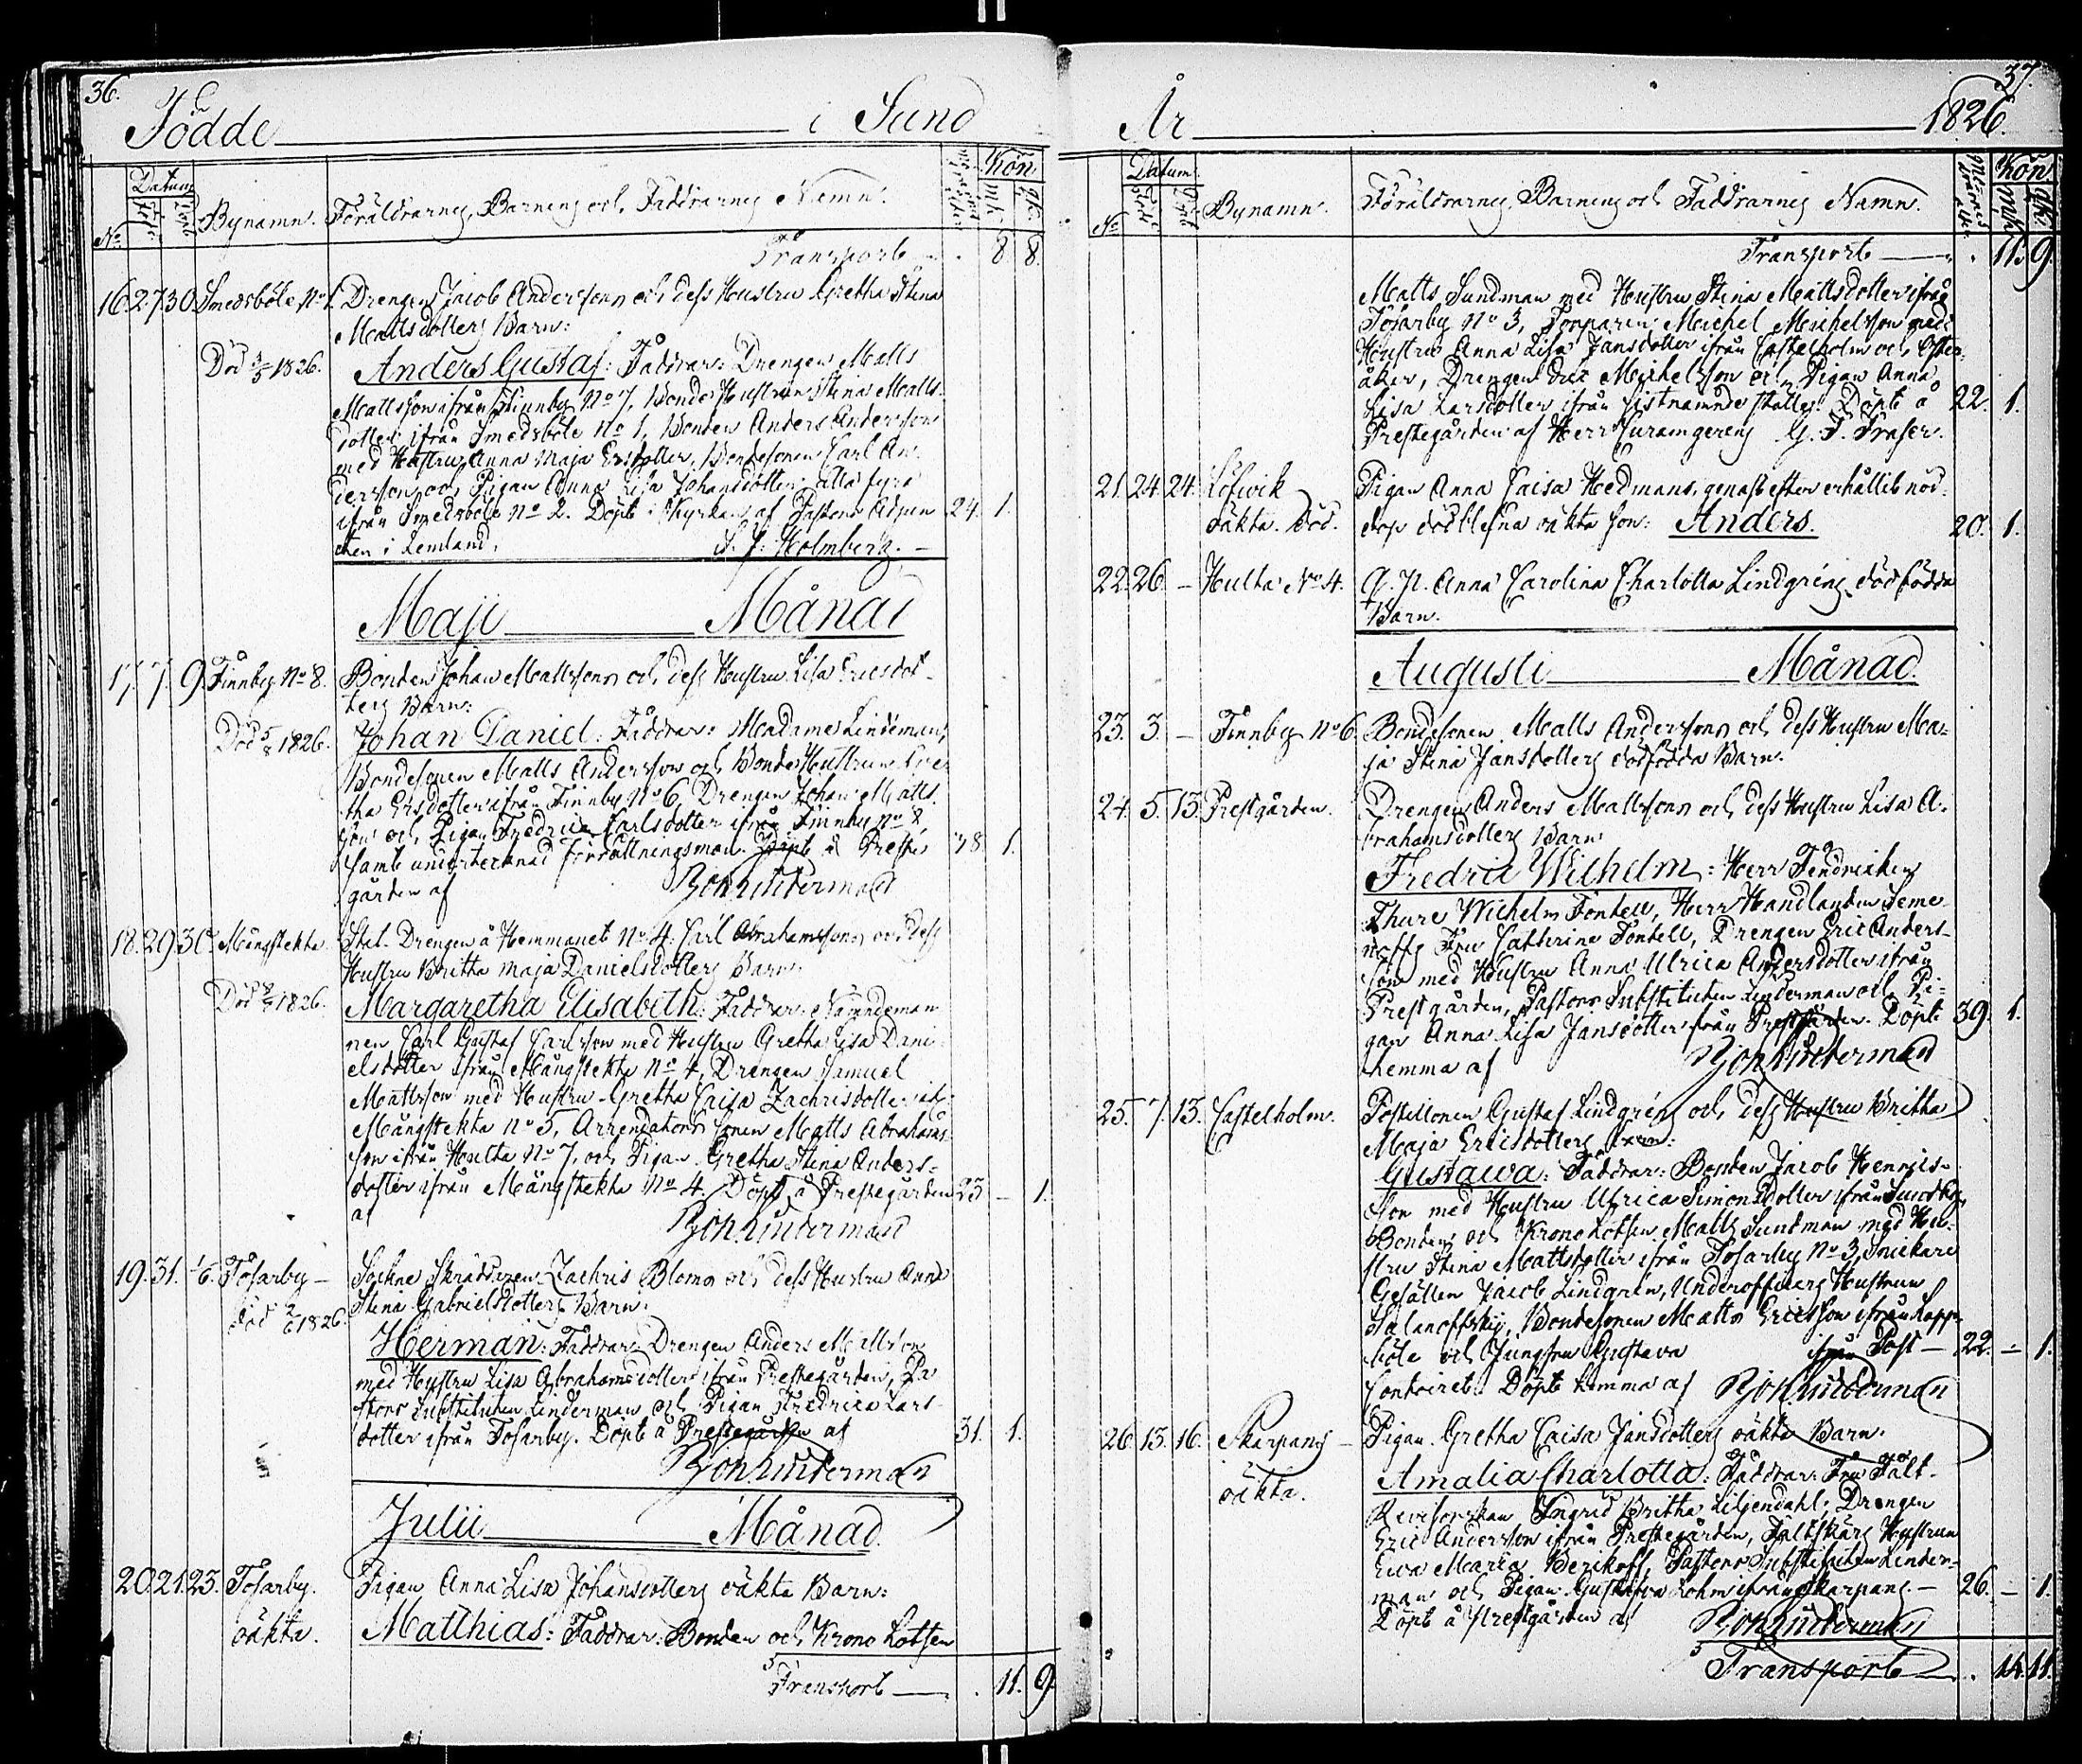 36.
Födde i Sund
Datum Kön
No Bynamn. Föräldrarnes, Barnens och Faddrarnes Namn.
Transport 8 8.
16. 27. 30. Smedsböle No 1. Drengen Jacob Anderssons och dess Hustru Gretha Stina
Mattsdotters Barn:
Död 3/5 1826. Anders Gustaf: Faddrar: Drengen Matts
Mattsson ifrån Finnby No 7, Bonde Hustrun Stina Matts-
dotter ifrån Smedsböle No 1, Bonden Anders Andersson
med Hustru Anna Maja Ersdotter, Bondesonen Carl An-
dersson och Pigan Anna Lisa Johansdotter alla fyra
ifrån Smedsböle No 2. Döpt i Kyrkan af Pastors Adjunc- 24. 1.
ten i Lemland, Holmberg.
Maji Månad
17. 7. 9. Finnby No 8. Bonden Johan Mattssons och dess Hustru Lisa Ericsdot-
ters Barn:
Död 5/8 1826. Johan Daniel: Faddrar: Madame Lindeman,
Bondesonen Matts Andersson och Bonde Hustrun Gre-
tha Ersdotter ifrån Finnby No 6, Drengen Johan Matts-
son och Pigan Fredrica Carlsdotter ifrån Finnby No 8,
samt undertecknad förrättningsman. Döpt å Preste- 38. 1.
gården af Joh Linderman
18. 29. 30. Mångstekta Stat-Drengen å Hemmanet No 4. Carl Abrahamssons och dess
Hustru Britha Maja Danielsdotters Barn:
Död 1826. Margaretha Elisabeth: Faddrar: Nämndeman-
nen Carl Gustaf Carlsson med Hustru Gretha Lisa Dani-
elsdotter ifrån Mångstekta No 4, Drengen Samuel
Mattsson med Hustru Gretha Caisa Zachrisdotter
Mångstekta No 5, Arrendators sonen Matts Abrahams-
son ifrån Hulta No 7, och Pigan Gretha Stina Anders-
dotter ifrån Mångstekta No 4. Döpt å Prestegården 23 – 1.
af Joh Linderman
19. 31. 1/6. Tosarby – Sockne Skräddaren Zachris Bloms och dess Hustru Anna
Stina Gabrielsdotters Barn:
död 2/6 1826. Herman: Faddrar: Drengen Anders Mattsson
med Hustru Lisa Abrahamsdotter ifrån Prestegården, Pa-
stors Substituten Linderman och Pigan Fredrica Lars-
dotter ifrån Tosarby. Döpt å Prestegården af 31. 1.
Joh Linderman
Julii Månad.
20. 21. 23. Tosarby. Pigan Anna Lisa Johansdotters oäkta Barn:
oäkta. Matthias: Faddrar: Bonden och Krono Lotsen
Transport 11. 9.
37.
År 1826.
Datum. Kön
No Bynamn. Föräldrarnes, Barnens och Faddrarnes Namn.
Transport 11. 9.
Matts Sundman med Hustru Stina Mattsdotter ifrån
Tosarby No 3, Torparen Michel Michelsson med
Hustru Anna Lisa Jansdotter ifrån Castelholm och
åker, Drengen Michelsson och Pigan Anna
Lisa Larsdotter ifrån sistnämnde ställe. Döpt å 22. 1.
Prestegården af Herr G. F. Fraser.
21. 24. 24. Löfwik Pigan Anna Caisa Hedmans, genast efter erhållit nöd-
oäkta. död. dop oäkta son: Anders. 20. 1.
22. 26. – Hulta No 4. Anna Carolina Charlotta Lindgrens dödfödda
Barn.
Augusti Månad.
23. 3. – Finnby No 6. Bondesonen Matts Anderssons och dess Hustru Ma-
ja Stina Jansdotters dödfödda Barn.
24. 5. 13. Prestgården. Drengen Anders Mattssons och dess Hustru Lisa A-
brahamsdotters Barn:
Fredric Wilhelm: Herr Fendricken
Thure Wilhelm Fontell, Herr Handlanden Seme-
noffs Fru Cathrina Fontell, Drengen Eric Anders-
son med Hustru Anna Ulrica Andersdotter ifrån
Prestgården, Pastors Substituten Linderman och Pi-
gan Anna Lisa Jansdotter från Prestgården. Döpt 39. 1.
hemma af Joh Linderman
25. 7. 13. Castelholm. Postillonen Gustaf Lindgréns och dess Hustru Britha
Maja Ericsdotters Barn:
Gustawa: Faddrar: Bonden Jacob Henrics-
son med Hustru Ulrica Simonsdotter ifrån Sundby,
Bonden och Krono Lotsen Matts Sundman med Hu-
stru Stina Mattsdotter ifrån Tosarby No 3, Snickare
Gesällen Jacob Lindgrén, Underofficers Hustrun
Bondesonen Matts Ericsson ifrån Kapp-
böle och Jungfru Gustava ifrån Post – 22. – 1.
Contoiret. Döpt hemma af Joh Linderman
26. 13. 16. Skarpans – Pigan Gretha Caisa Jansdotters oäkta Barn.
oäkta. Amalia Charlotta: Faddrar: Fru Fält-
Revisorskan Ingrid Britha Liljendahl, Drengen
Eric Andersson ifrån Prestegården, Fältskärs Hustrun
Ewa Maria Berikoff, Pastors Substituten Linder-
man och Pigan Gustava Holm ifrån Skarpans – 26. – 1.
Döpt å Prestgården af Joh Linderman
Transport 14. 11.